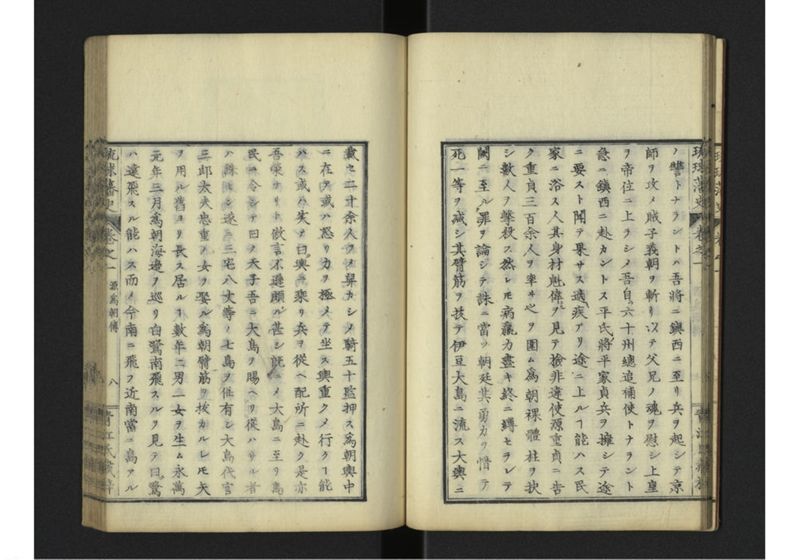 琉球藩史 卷之一
ノ讐トナラントハ吾將ニ鎭西ニ至リ兵ヲ起シテ京
師ヲ攻メ賊子義朝ヲ斬リ以テ父兄ノ魂ヲ慰シ上皇
ヲ帝位ニ上ラシメ吾自ラ六十州總追補使トナラント
急ニ鎭西ニ赴カントス平氏將平家貞兵ヲ擁シテ途
ニ要スト聞テ果サス適疾アリ途ニ上ルヿ能ハス民
家ニ浴ス人其身材魁偉ヲ見テ撿非違使源重貞ニ告
ク重貞三百余人ヲ率ヰ之ヲ圍ム爲朝裸體柱ヲ抉
シ數人ヲ擊殺ス然レモ病羸力盡キ終ニ縛セラレテ
闕ニ至ル罪ヲ論シテ誅ニ當ツ朝廷其勇力ヲ惜テ
死一等ヲ减シ其臂筋ヲ抜テ伊豆大島ニ流ス大輿ニ
載セ二十余人ヲノ舁カシメ騎五十監押ス爲朝輿中
ニ在テ或ハ怒リ力ヲ極メテ坐ス輿重クノ行クヿ能
ハス或ハ笑テ曰輿ニ乘リ兵ヲ從ヘ配所ニ赴ク是亦
吾榮ナリト傲言不遜顧ル甚シ既ニノ大島ニ至リ島
民ニ令シテ曰ク天子吾ニ大島ヲ賜ヘリ從ハサル者
ハ誅セント遂ニ三宅八丈等ノ七島ヲ併有シ大島代官
三郎太夫忠重ノ女ヲ娶ル爲朝臂筋ヲ抜カルレモ矢
ヲ用ル舊ヨリ長ス居ルヿ數年二男一女ヲ生ム永萬
元年三月爲朝海邉ヲ巡リ白鷺南飛スルヲ見テ曰鷺
ハ遠飛スル能ハス而メ今南ニ飛フ近南當ニ島アル
琉球藩史 卷之一 源爲朝傳 八 青江氏藏梓